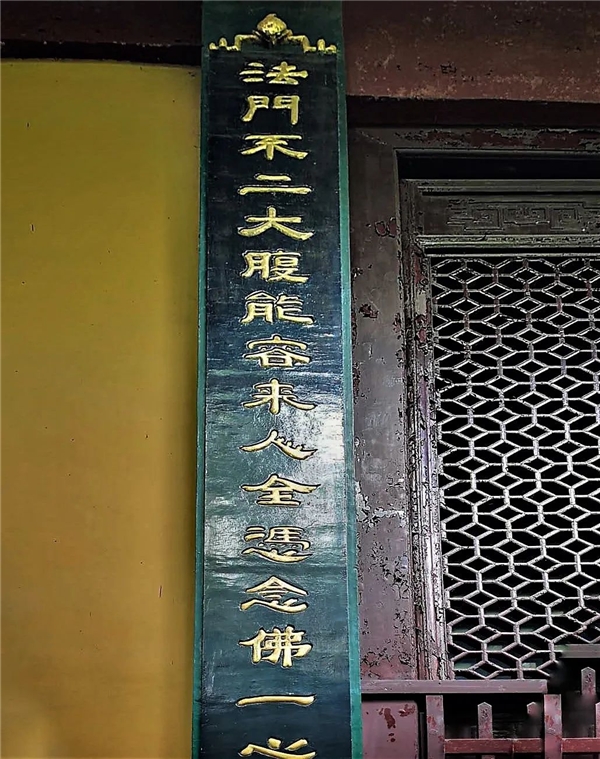 法門不二大腹能容来心全憑念佛一心